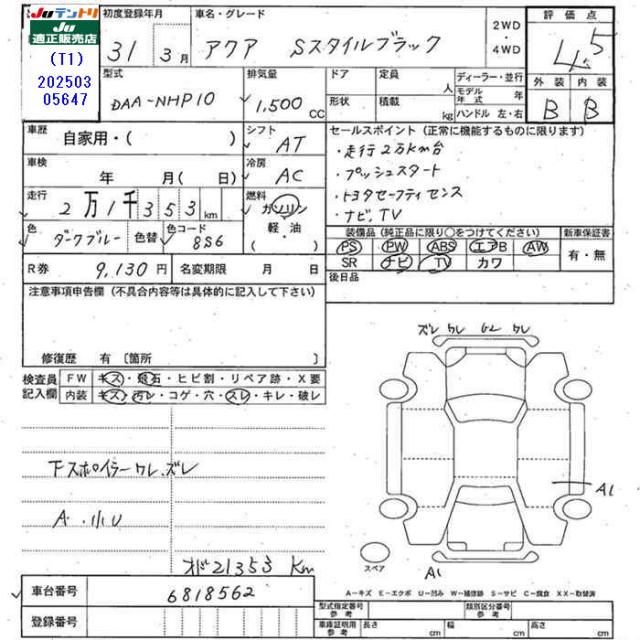 JUテントリ
JU
適正販売店
(T1)
202503
05647
初度登録年月
31 3月
車名・グレード
アクア Sスタイルブラック
2WD
・
4WD
評価点
4.5
外装 内装
B B
型式
DAA-NHP10
排気量
1,500 CC
ドア 定員 人
形状 積載 kg
ディーラー・並行
モデル年式 年
ハンドル 左・右
車歴
自家用・( )
シフト
AT
車検
年 月( 日)
冷房
AC
走行
2万1千353 km
燃料
ガソリン
軽・油
( )
色
ダークブルー
色替
色コード
8S6
セールスポイント (正常に機能するものに限ります)
・走行2万km台
・プッシュスタート
・トヨタセーフティセンス
・ナビ、TV
装備品 (純正品に限り○をつけてください)
PS PW ABS エアB AW
SR ナビ TV カワ
新車保証書
有・無
後日品
R券 9,130円
名変期限 月 日
注意事項申告欄 (不具合内容等は具体的に記入して下さい)
修復歴 有 〔箇所
検査員
記入欄
FW キズ・飛石・ヒビ割・リペア跡・X要
内装 キズ・汚レ・コゲ・穴・スレ・キレ・破レ
下スポイラーワレ、ズレ
A・小U
メーター21353 Km
ズレ ワレ ワレ
A1
A1
スペア
A-キズ E-エクボ U-凹み W-補修跡 S-サビ C-腐食 XX-取替済
車台番号
6818562
登録番号
型式指定番号
参考
類別区分番号
参考
車庫証明用
参考
長さ cm
幅 cm
高さ cm